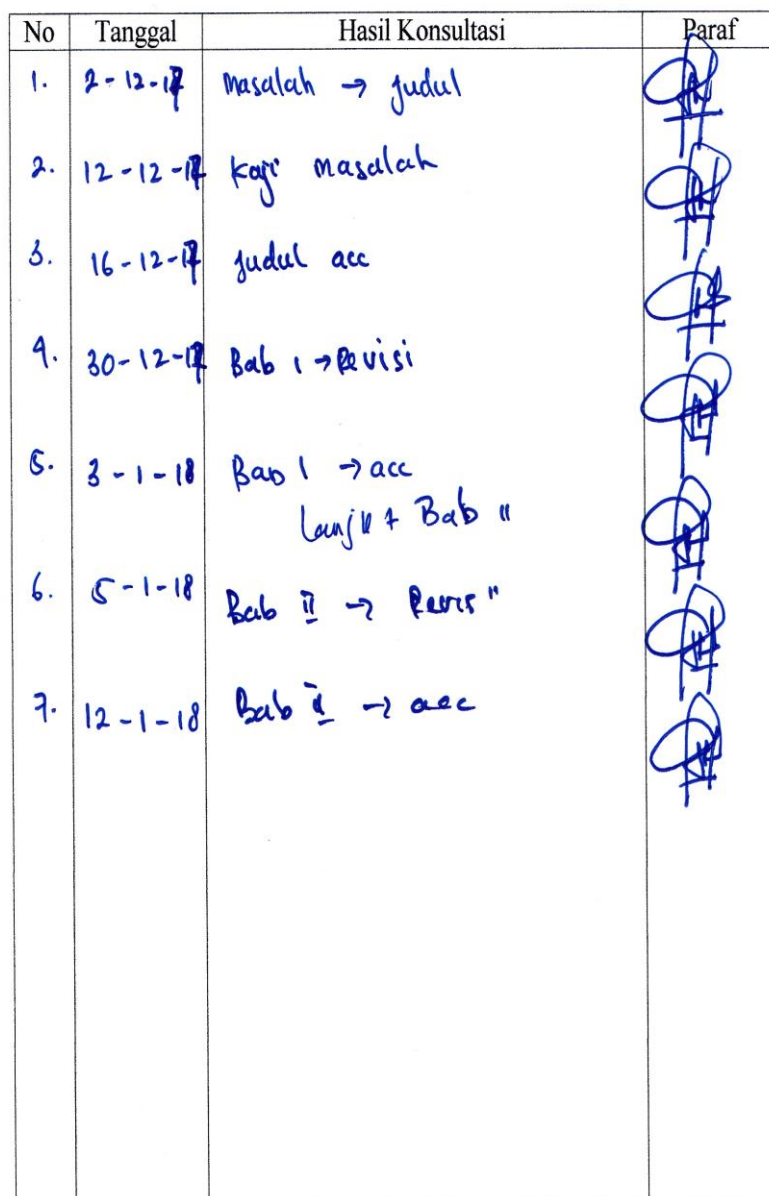 No Tanggal Hasil Konsultasi Paraf
1. 2-12-17 Masalah → Judul
2. 12-12-17 Kaji masalah
3. 16-12-17 Judul acc
4. 30-12-17 Bab I → Revisi
5. 3-1-18 Bab I → acc
Lanjut Bab II
6. 5-1-18 Bab II → Revisi
7. 12-1-18 Bab II → acc